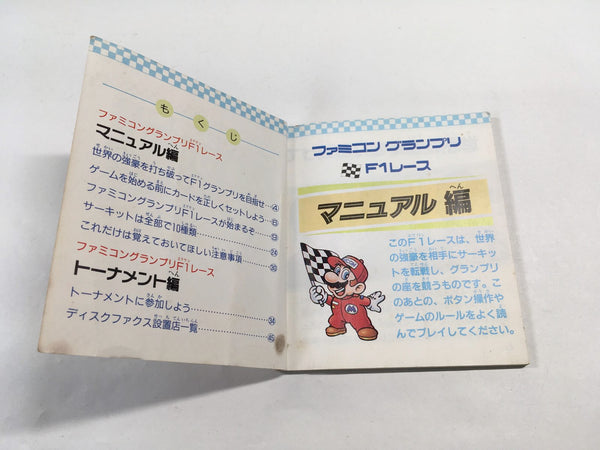 もくじ
ファミコングランプリF1レース
マニュアル編
世界の強豪を打ち破ってF1グランプリを目指せ…④
ゲームを始める前にカードを正しくセットしよう…
ファミコングランプリF1レースが始まるぞ…
サーキットは全部で10種類…
これだけは覚えておいてほしい注意事項…㉚
ファミコングランプリF1レース
トーナメント編
トーナメントに参加しよう…㉞
ディスクファクス設置店一覧…㊺
ファミコン グランプリ
F1レース
マニュアル 編
このF1レースは、世界
の強豪を相手にサーキッ
トを転戦し、グランプリ
の座を競うものです。こ
のあとの、ボタン操作や
ゲームのルールをよく読
んでプレイしてください。